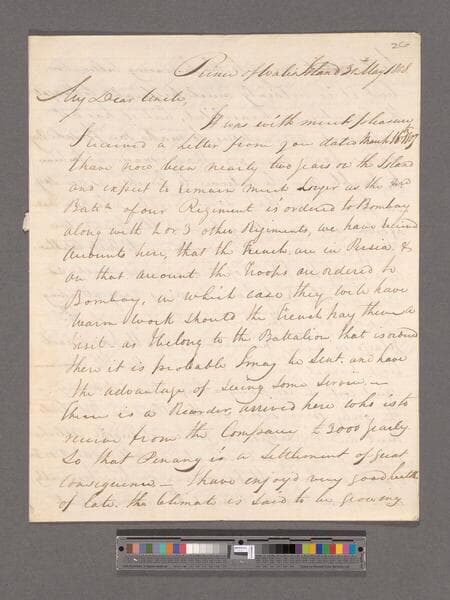 26
Prince of Wales Island 31st May 1808
My Dear Uncle,
It was with much pleasure
I received a Letter from you dated March 16th 1807
I have now been nearly two years on the Island
and expect to remain much longer as the
Batn of our Regiment is ordered to Bombay
along with 2 or 3 other Regiments, we have
accounts here, that the French are in Persia &
on that account the Troops are ordered to
Bombay, in which case they will have
warm work should the French pay them a
visit as I belong to the Battalion that is ordered
there it is probable I may be sent. and have
the advantage of seeing some Service
there is a Recorder arrived here who is to
receive from the Company £3000 yearly
So that Penang is a Settlement of great
Consequence — I have enjoyd very good health
of late. the Climate is said to be growing